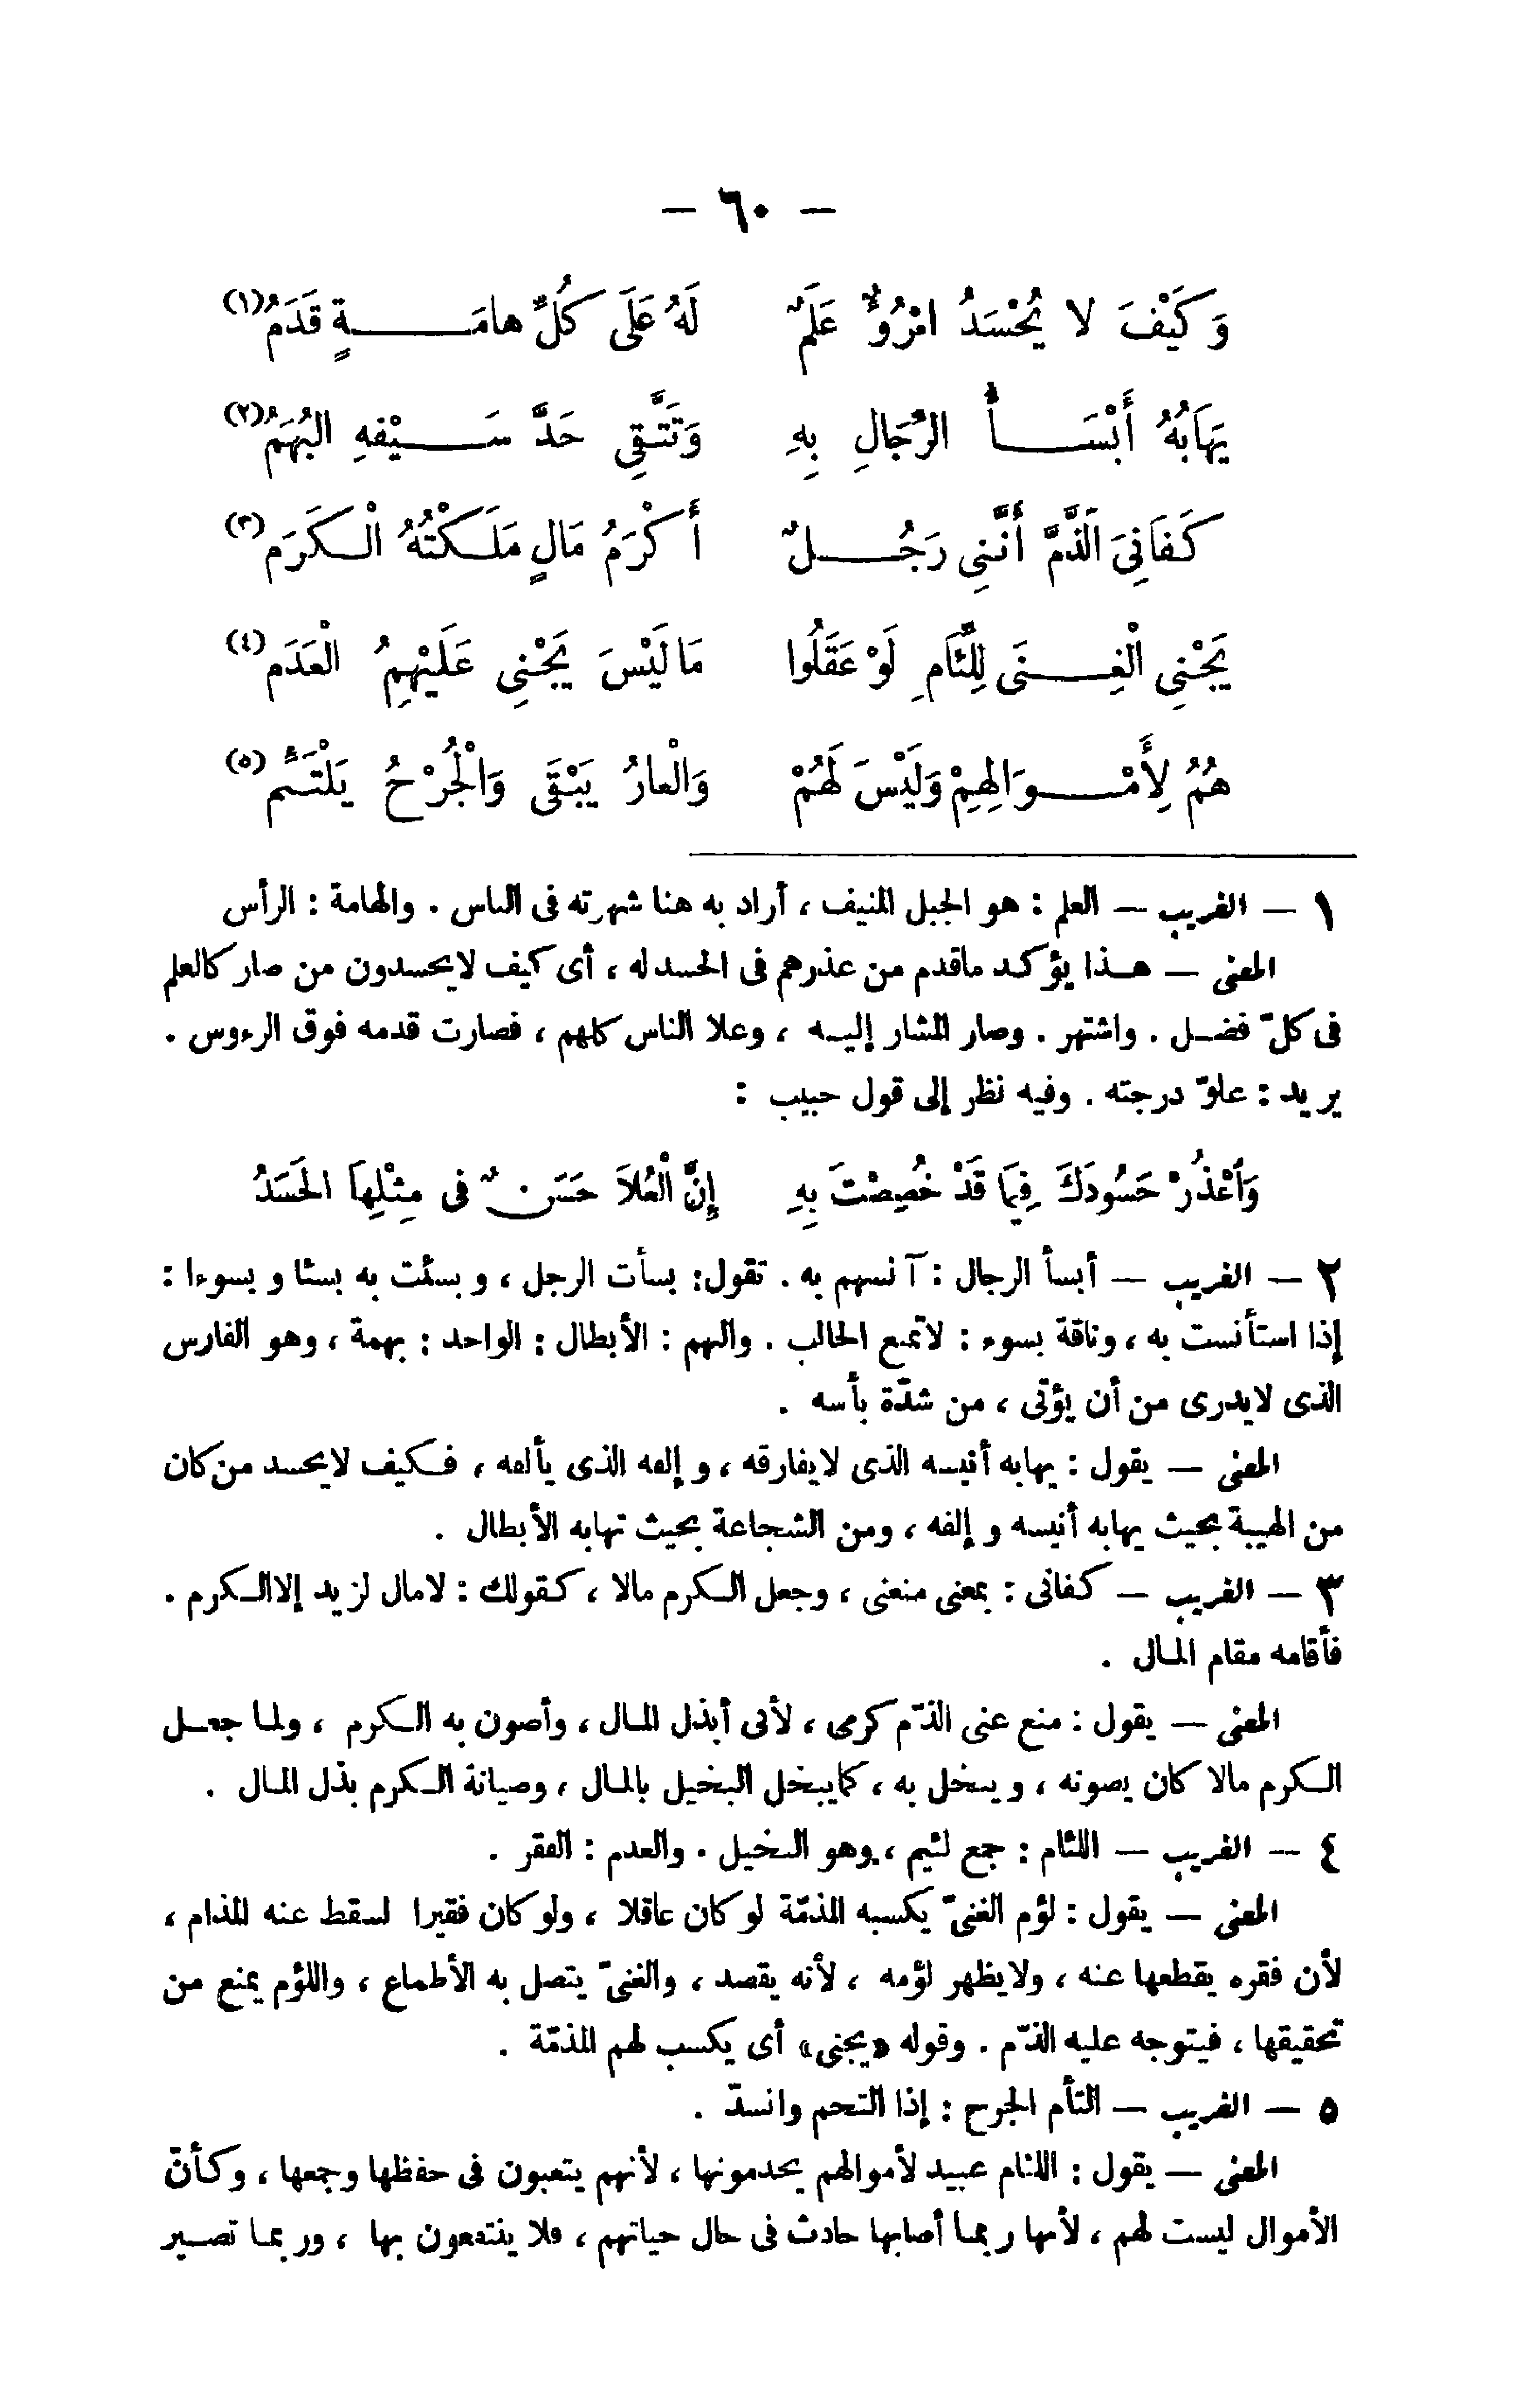 — ٦٠ —
وَكَيْفَ لا يُحْسَدُ امْرُؤٌ عَلَمٌ لَهُ عَلَى كُلِّ هامَةٍ قَدَمُ (١)
يَهَابُهُ أَبْسَأُ الرِّجَالِ بِهِ وَتَتَّقِى حَدَّ سَيْفِهِ البُهَمُ (٢)
كَفَانِىَ الذَّمَّ أَنَّنِى رَجُلٌ أَكْرَمُ مَالٍ مَلَكْتُهُ الْكَرَم (٣)
يَجْنِى الْغِنَى لِلِّئَامِ لَوْ عَقَلُوا مَا لَيْسَ يَجْنِى عَلَيْهِمُ الْعَدَم (٤)
هُمُ لِأَمْوَالِهِمْ وَلَيْسَ لَهُمْ وَالْعارُ يَبْقَى وَالْجُرْحُ يَلْتَئِم (٥)
١ — الغريب — العلم : هو الجبل المنيف ، أراد به هنا شهرته فى الناس . والهامة : الرأس
المعنى — هذا يؤكد ماقدم من عذرهم فى الحسد له ، أى كيف لايحسدون من صار كالعلم
فى كلّ فضل . واشتهر . وصار المشار إليه ، وعلا الناس كلهم ، فصارت قدمه فوق الرءوس .
يريد : علوّ درجته . وفيه نظر إلى قول حبيب :
وَاعْذُرْ حَسُودَكَ فِيمَا قَدْ خُصِصْتَ بِهِ إِنَّ الْعُلاَ حَسَنٌ فى مِثْلِهاَ الحَسَدُ
٢ — الغريب — أبسأ الرجال : آنسهم به . تقول: بسأت الرجل ، وبسئت به بسئا وبسوءا :
إذا استأنست به ، وناقة بسوء : لاتمنع الحالب . والبهم : الأبطال : الواحد : بهمة ، وهو الفارس
الذى لايدرى من أن يؤتى ، من شدّة بأسه .
المعنى — يقول : يهابه أنيسه الذى لايفارقه ، وإلفه الذى يألفه ، فكيف لايحسد من كان
من الهيبة بحيث يهابه أنيسه وإلفه ، ومن الشجاعة بحيث تهابه الأبطال .
٣ — الغريب — كفانى : بمعنى منعنى ، وجعل الكرم مالا ، كقولك : لامال لزيد إلا الكرم .
فأقامه مقام المال .
المعنى — يقول : منع عنى الذّم كرمى ، لأنى أبذل المال ، وأصون به الكرم ، ولما جعل
الكرم مالا كان يصونه ، ويبخل به ، كما يبخل البخيل بالمال ، وصيانة الكرم بذل المال .
٤ — الغريب — اللئام : جمع لئيم ، وهو البخيل . والعدم : الفقر .
المعنى — يقول : لؤم الغنىّ يكسبه المذمّة لو كان عاقلا ، ولو كان فقيرا لسقط عنه المذام ،
لأن فقره يقطعها عنه ، ولايظهر لؤمه ، لأنه يقصد ، والغنىّ يتصل به الأطماع ، واللؤم يمنع من
تحقيقها ، فيتوجه عليه الذّم . وقوله «يجنى» أى يكسب لهم المذمّة .
٥ — الغريب — التأم الجرح : إذا التحم وانسدّ .
المعنى — يقول : اللئام عبيد لأموالهم يخدمونها ، لأنهم يتعبون فى حفظها وجمعها ، وكأنّ
الأموال ليست لهم ، لأنها ربما أصابها حادث فى حال حياتهم ، فلا ينتفعون بها ، وربما تصير